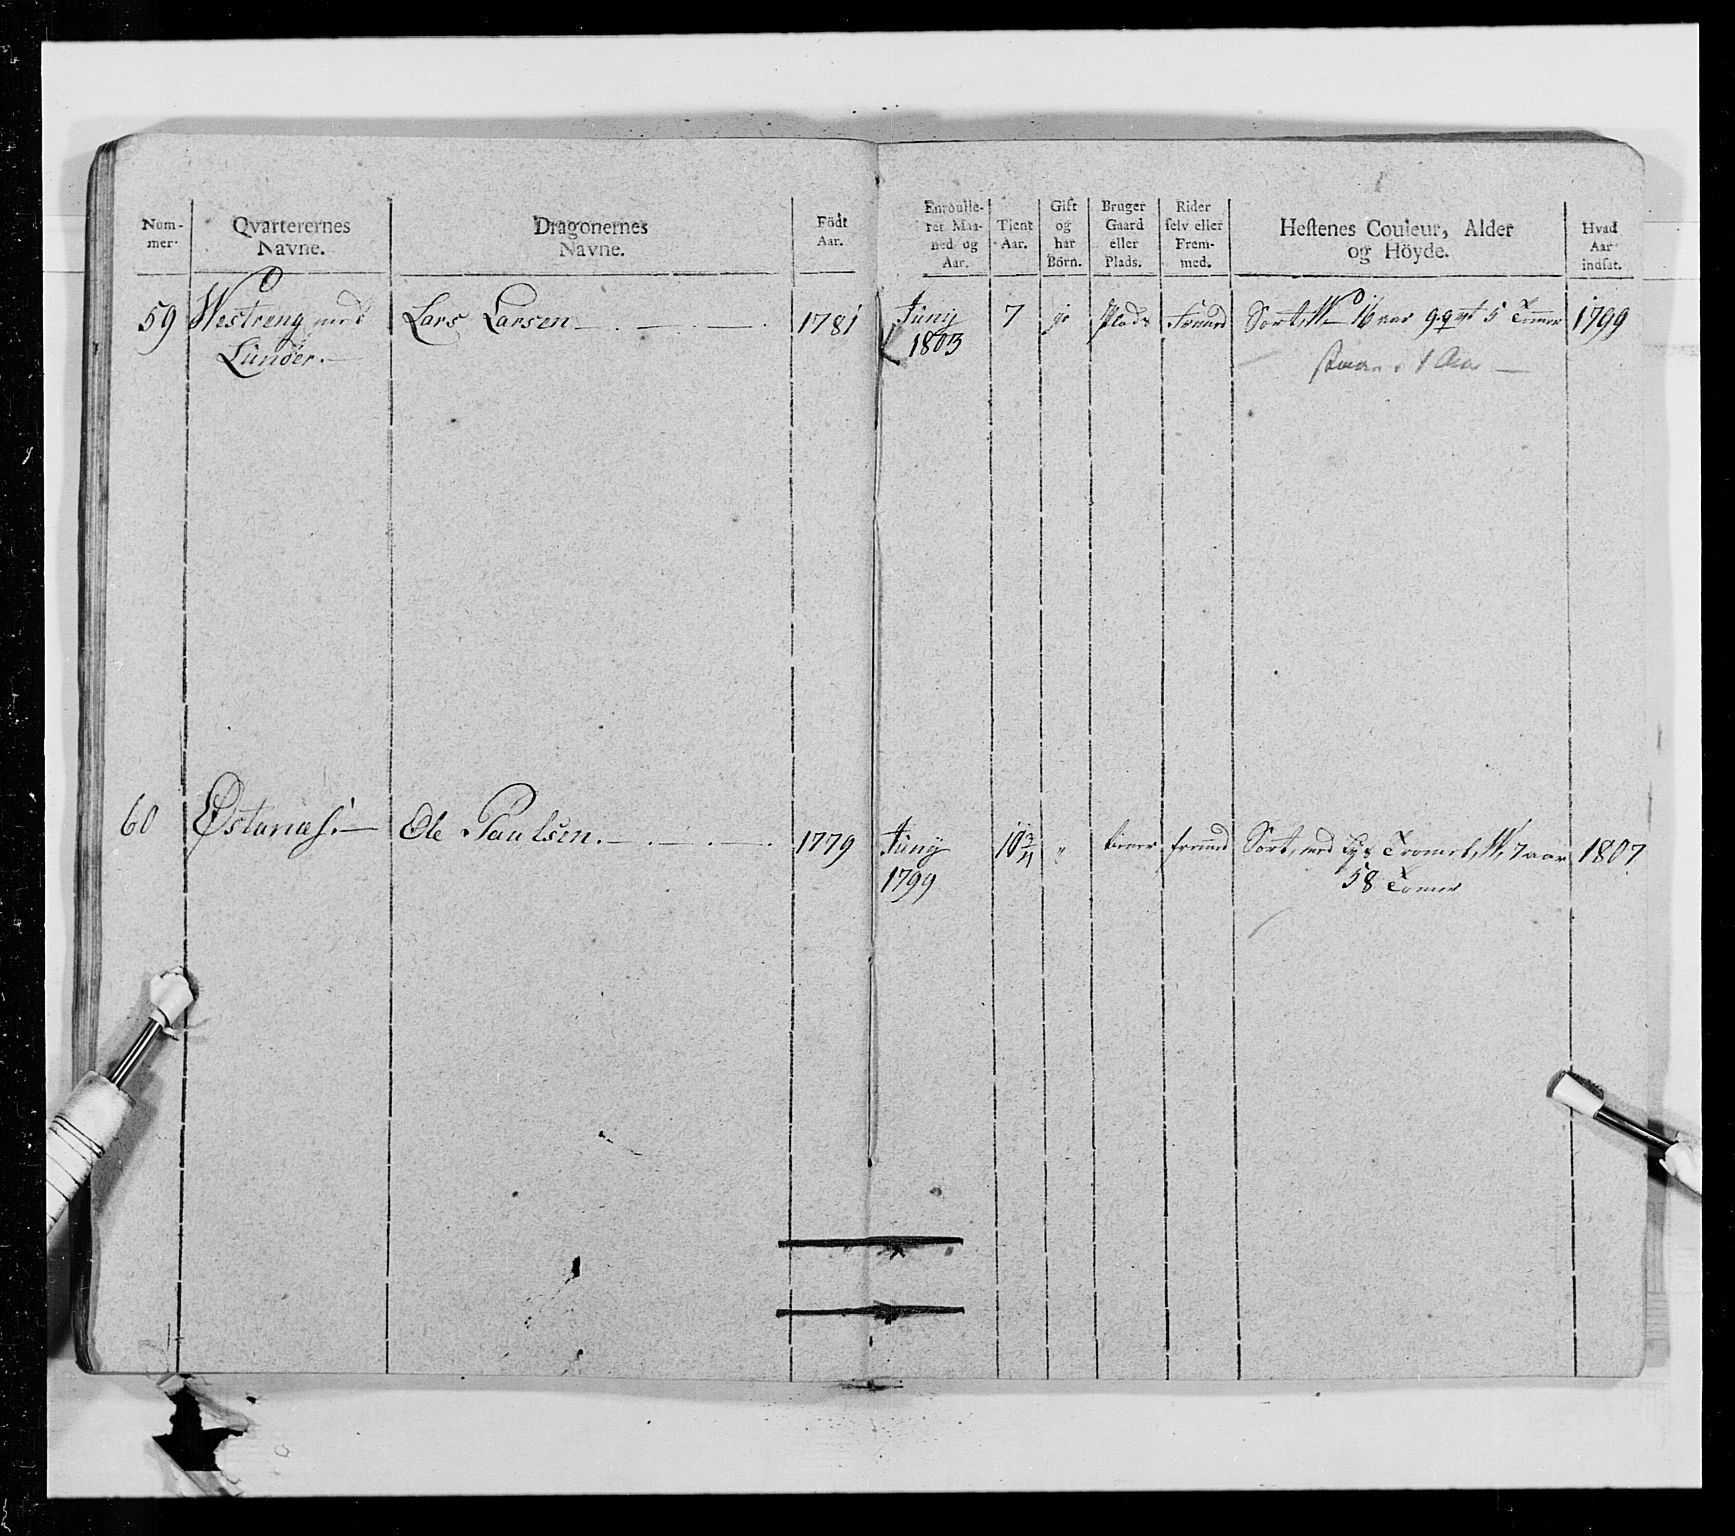 Num-
mer.
Qvarterernes
Navne.
Dragonernes
Navne.
Födt
Aar.
Enroulle-
ret Maa-
ned og
Aar.
Tient
Aar.
Gift
og
har
Börn.
Bruger
Gaard
eller
Plads.
Rider
selv eller
Frem-
med.
Hestenes Couleur, Alder
og Höyde.
Hvad
Aar
indsat.
59 Westreng med Lars Larsen 1781 Juny 7 Plads Fremd Sort, 16 aar 1799
Lunder. 1803
60 Østanæs. Ole Paulsen. 1779 Juny 10 tiener fremd Sort, med 7 aar 1807
1799 58 Tomer